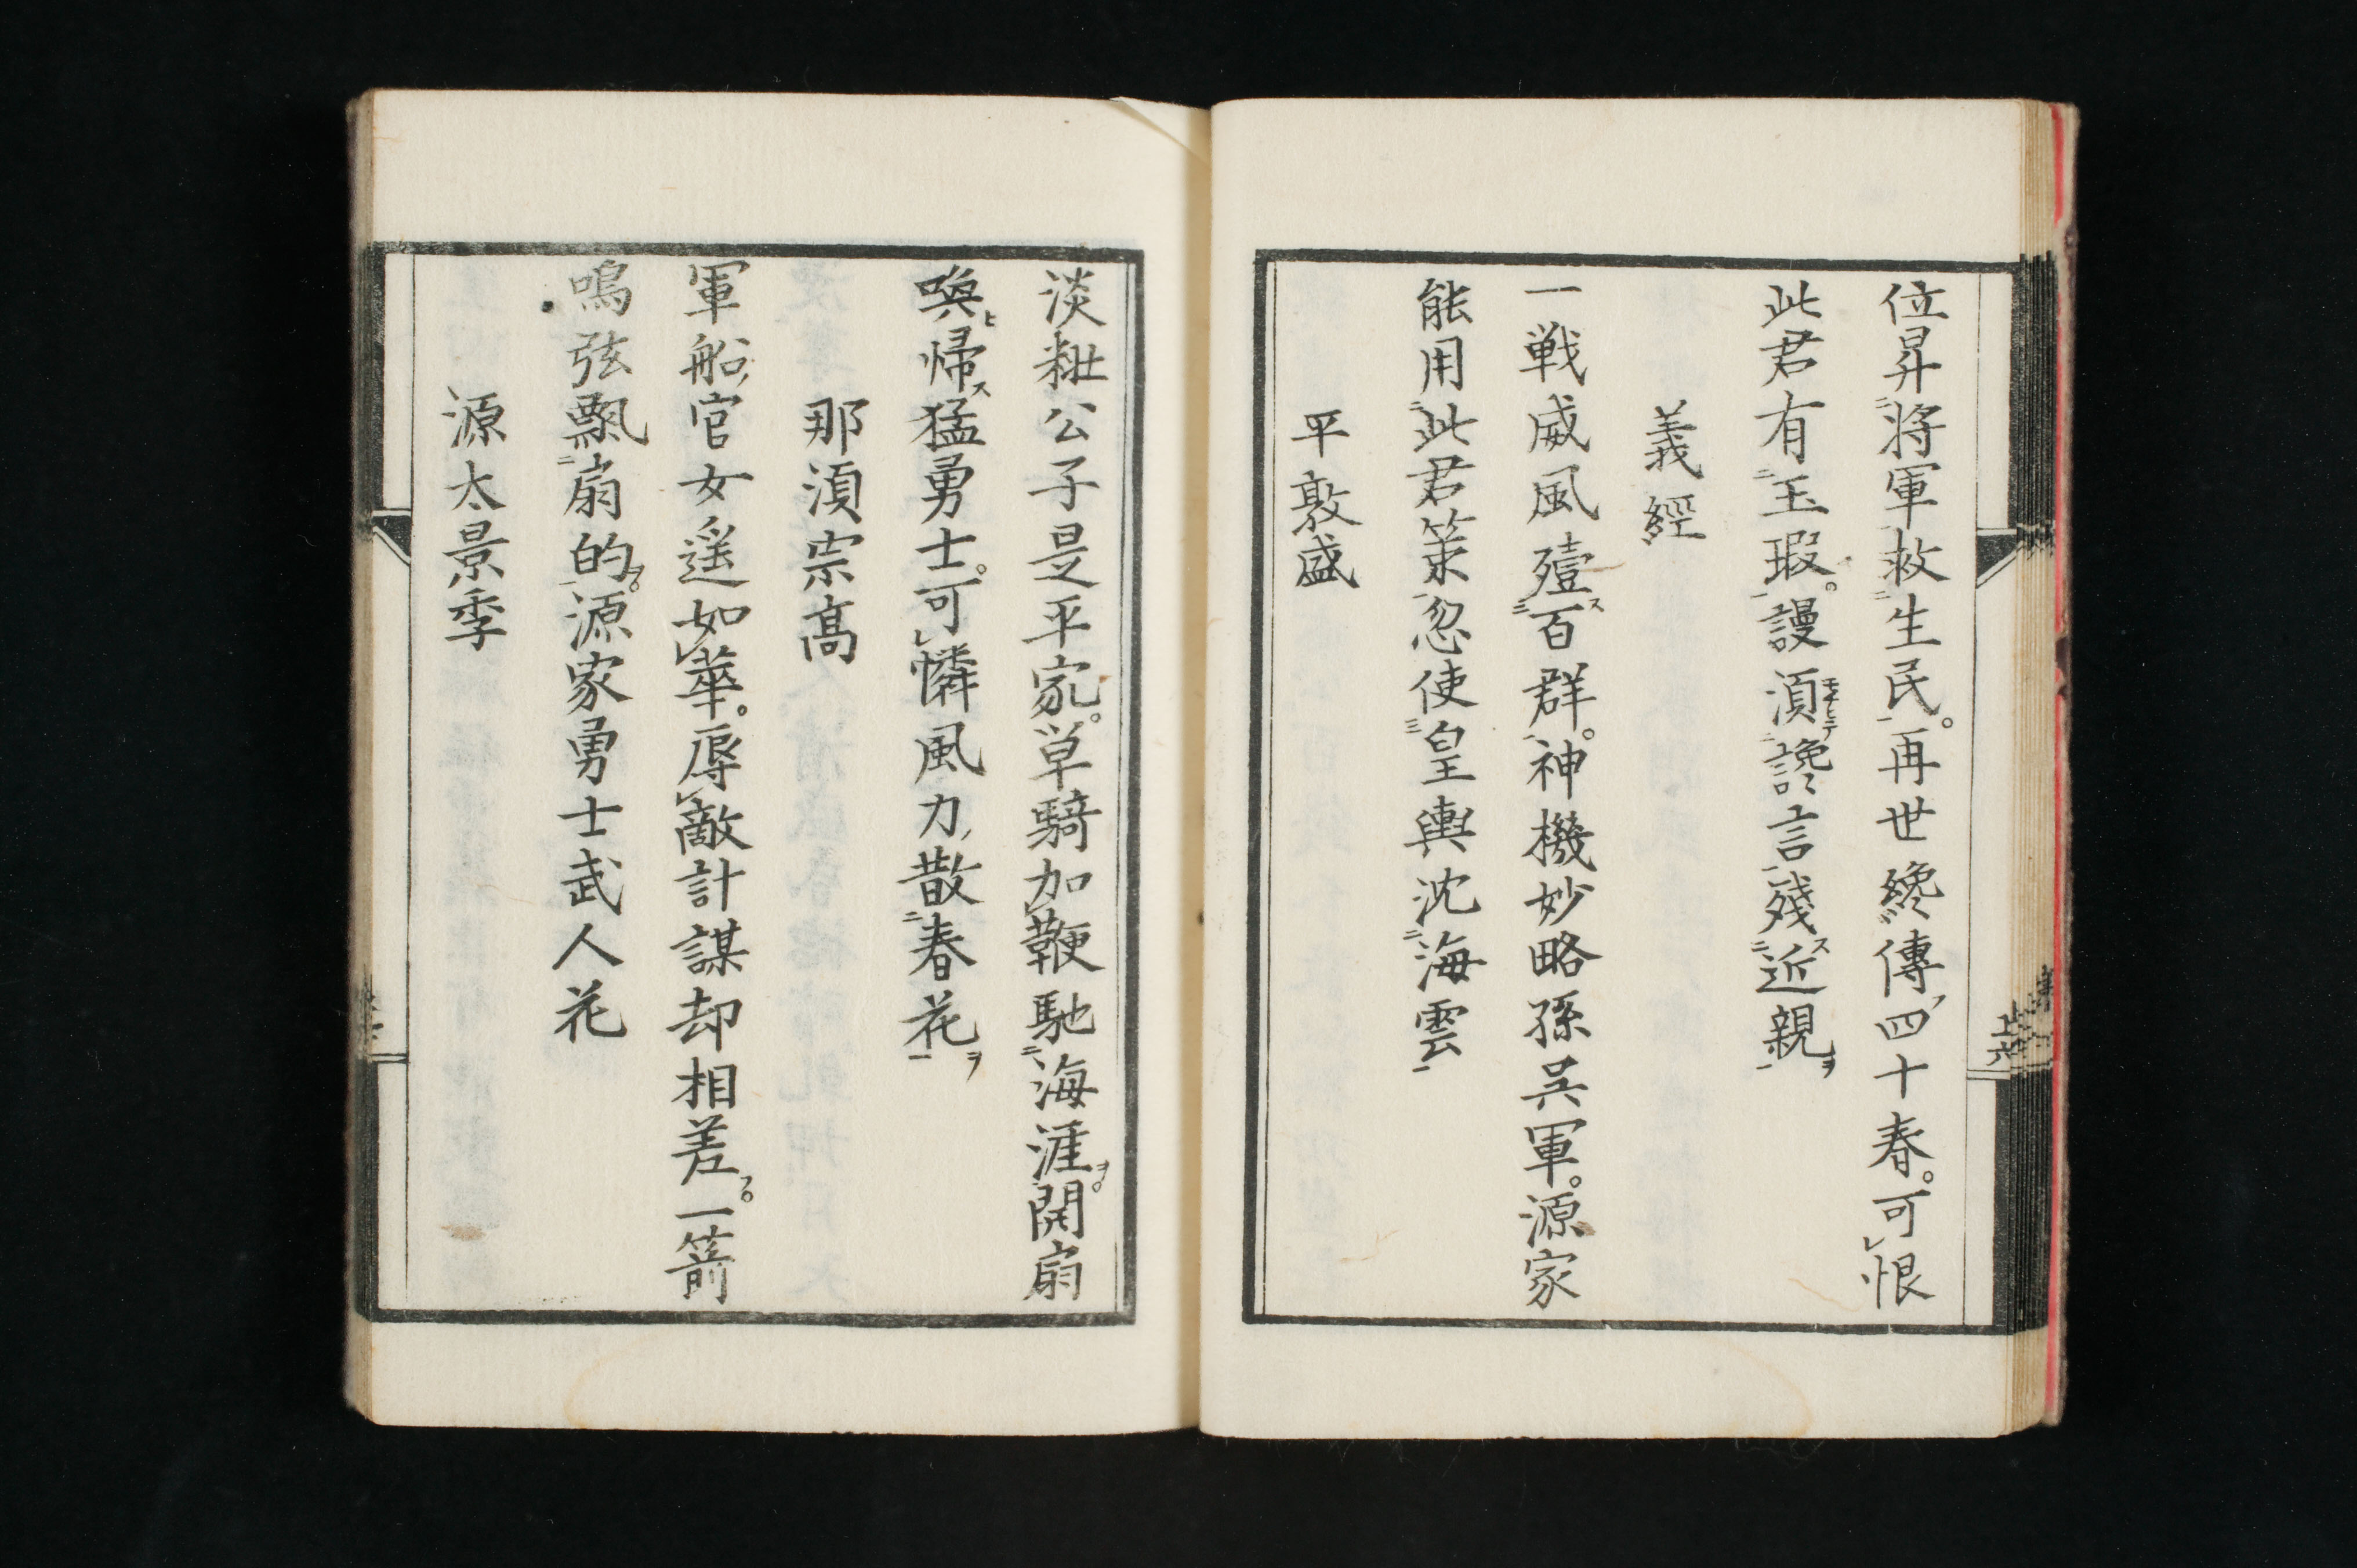 位昇将軍救生民。再世纔傳四十春。可恨
此君有玉瑕。謾須讒言殘近親
義經
一戦威風殪百群。神機妙略孫呉軍。源家
能用此君策忽使皇輿沈海雲
平敦盛
淡粧公子是平家。単騎加鞭馳海涯。開扇
喚帰猛勇士。可憐風力散春花
那須宗高
軍船官女遥如華。辱敵計謀却相差。一箭
鳴弦飄扇的。源家勇士武人花
源太景季